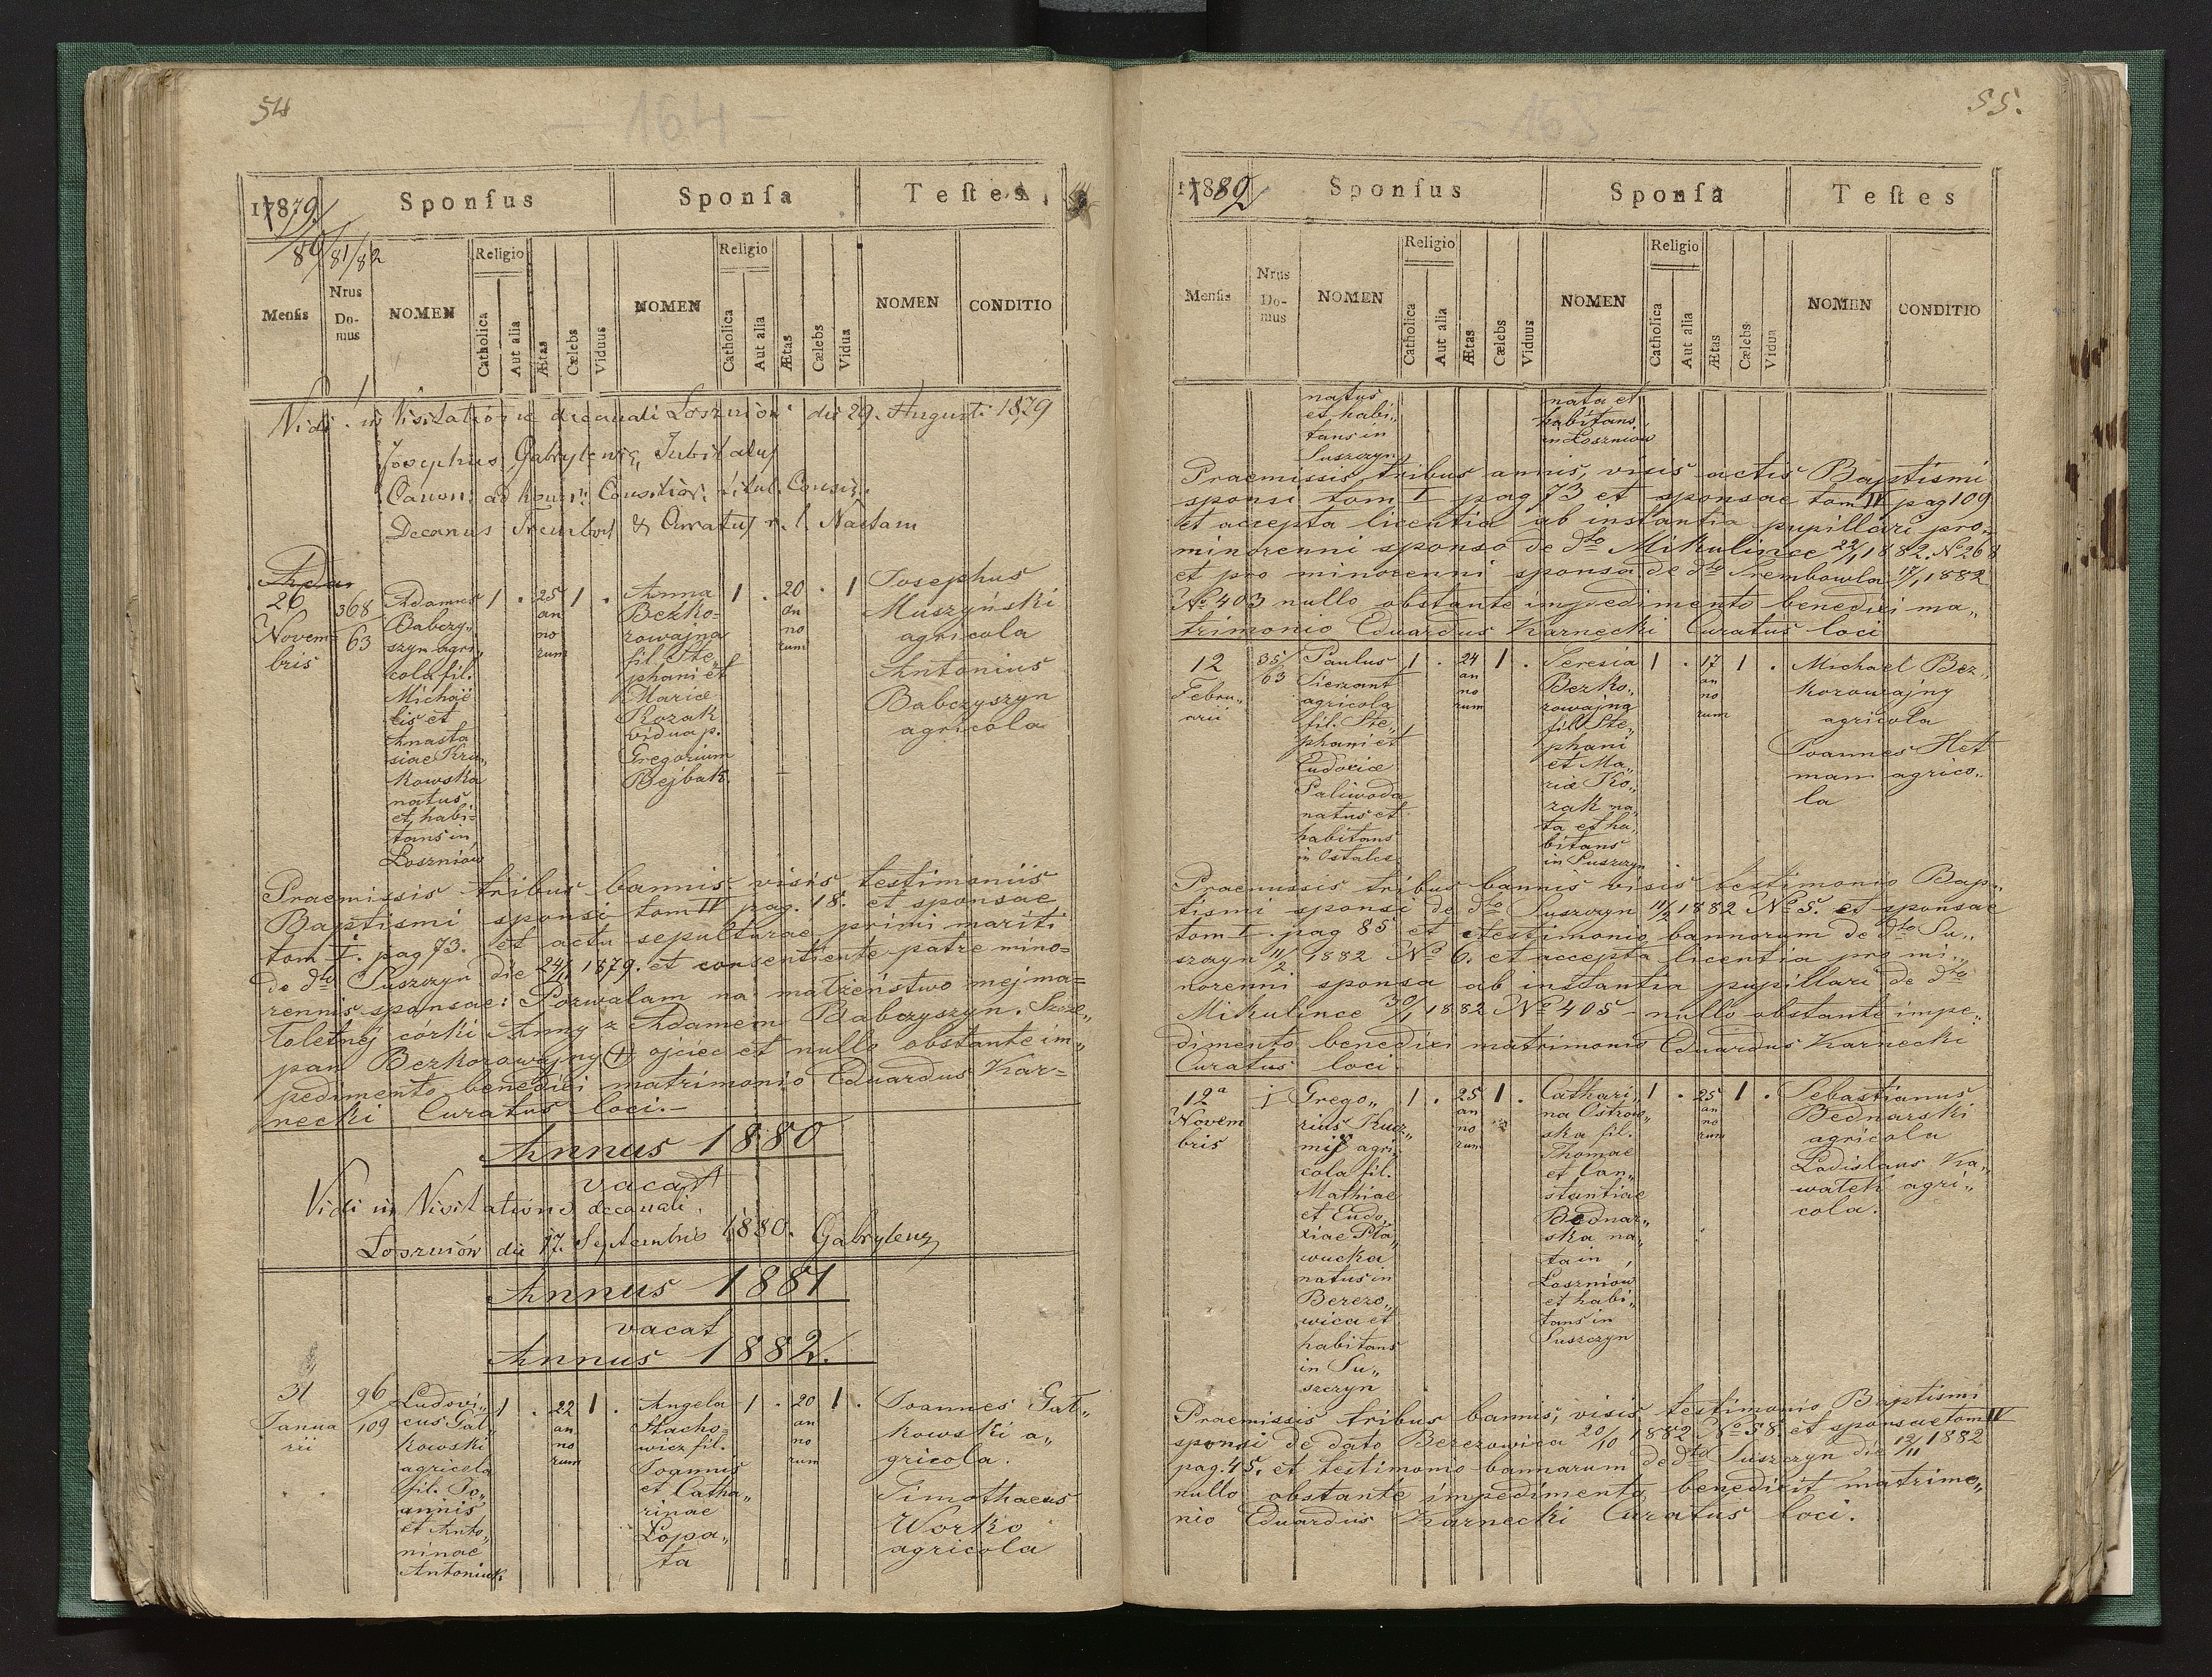 54
- 164 -
17879/80/81/82
Sponſus
Sponſa
Teſtes
Menſis
Nrus Do-mus
NOMEN
Religio
Catholica
Aut alia
Ætas
Cælebs
Viduus
NOMEN
Religio
Catholica
Aut alia
Ætas
Cælebs
Vidua
NOMEN
CONDITIO
Vidi in Visitatione decanali Loszniów die 29. Augusti 1879
Josephus Gabrylewicz Jubilatus
Canon: ad honor:
Decanus Trembow & Curatus r. l. Nastasów
26
Novem=
bris
368
63
Adamus
Babczy„
szyn agri„
cola fil.
Michaë
lis et
Anasta
siae Kra„
kowska
natus
et habi=
tans in
Loszniów
1 . 25 1 .
an
no
rum
Anna
Bezko=
rowajna
fil. Ste„
phani et
Mariæ
Kozak
vidua p.
Gregorium
Bejbak.
1 . 20 . 1
an
no
rum
Josephus
Muszyński
agricola
Antonius
Babczyszyn
agricola
Praemissis tribus bannis visis testimoniis
Baptismi sponsi tom IV pag. 18. et sponsae
tom I. pag 73. et actu sepulturae primi mariti
de dto Suszczyn die 24/11 1879. et consentiente patre mino=
rennis sponsae: Pozwalam na małżeństwo mej ma=
łoletnéj córki Anny z Adamem Babczyszyn. Szcze„
pan Bezkorowajny (+) ojciec et nullo obstante im„
pedimento benedixi matrimonio Eduardus Kar=
necki Curatus loci.-
Annus 1880
vacat
Vidi in Visitatione decanali
Loszniów die 17. Septembris 1880. Gabrylewicz
Annus 1881
vacat
Annus 1882.
31
Janua
rii
96
109
Ludovi„
cus Gał„
kowski
agricola
fil. Jo„
annis
et Anto„
ninae
Antoniuk.
1 . 22 1 .
an
no
rum
Angela
Stacho=
wicz fil.
Joannis
et Catha„
rinae
Łopa„
ta
1 . 20 1 .
an
no
rum
Joannes Gał„
kowski a„
gricola.
Timothaeus
Worko
agricola
55.
- 165 -
17882
Sponſus
Sponſa
Teſtes
Menſis
Nrus Do-mus
NOMEN
Religio
Catholica
Aut alia
Ætas
Cælebs
Viduus
NOMEN
Religio
Catholica
Aut alia
Ætas
Cælebs
Vidua
NOMEN
CONDITIO
natus
et habi„
tans in
Suszczyn
nata et
habitans
in Loszniów
Praemissis tribus annis, visis actis Baptismi
sponsi tom I pag 73 et sponsae tom IV pag 109
et accepta licentia ab instantia pupillari pro=
minorenni sponso de dto Mikulince 22/1 1882. No 268
et pro minorenni sponsa de dto Trembowla 17/1 1882
No 403 nullo obstante impedimento benedixi ma„
trimonio Eduardus Karnecki Curatus loci
12
Febru„
arii
35/
63
Paulus
Sierzant
agricola
fil. Ste„
phani et
Eudociæ
Paliwoda
natus et
habitans
in Ostalce
1 . 24 1 .
an
no
rum
Teresia
Bezko„
rowajna
fil. Ste„
phani
et Ma„
riæ Ko„
zak na„
ta et ha„
bitans
in Suszczyn
1 . 17 1 .
an
no
rum
Michael Bez„
korowajny
agricola
Joannes Het
man agrico„
la
Praemissis tribus bannis visis testimonio Bap„
tismi sponsi de dto Suszczyn 11/2 1882 No 5. et sponsae
tom I. pag 85 et testimonio bannorum de dto Su„
szczyn 11/2 1882 No 6. et accepta licentia pro mi„
norenni sponsa ab instantia pupillari de dto
Mikulince 30/1 1882 No 405 - nullo obstante impe„
dimento benedixi matrimonio Eduardus Karnecki
Curatus loci.
12a
Novem
bris
1
Grego„
rius Kuz„
mij agri„
cola fil.
Mathiae
et Eudo„
xiae Pła„
wucka
natus in
Berezo„
wica et
habitans
in Su„
szczyn
1 . 25 1 .
an
no
rum
Cathari„
na Ostrow„
ska fil.
Thomae
et Con„
stantiae
Bednar„
ska na„
ta in
Loszniow
et habi„
tans in
Suszczyn
1 . 25 1 .
an
no
rum
Sebastianus
Bednarski
agricola
Ladislaus Ka„
watek agri„
cola.
Praemissis tribus bannis, visis testimonio Baptismi
sponsi de dato Berezowica 20/10 1882 No 58. et sponsae tom IV
pag. 45. et testimonio bannarum de dto Suszczyn die 12/11 1882
nullo obstante impedimento benedixit matrimo„
nio Eduardus Karnecki Curatus loci.